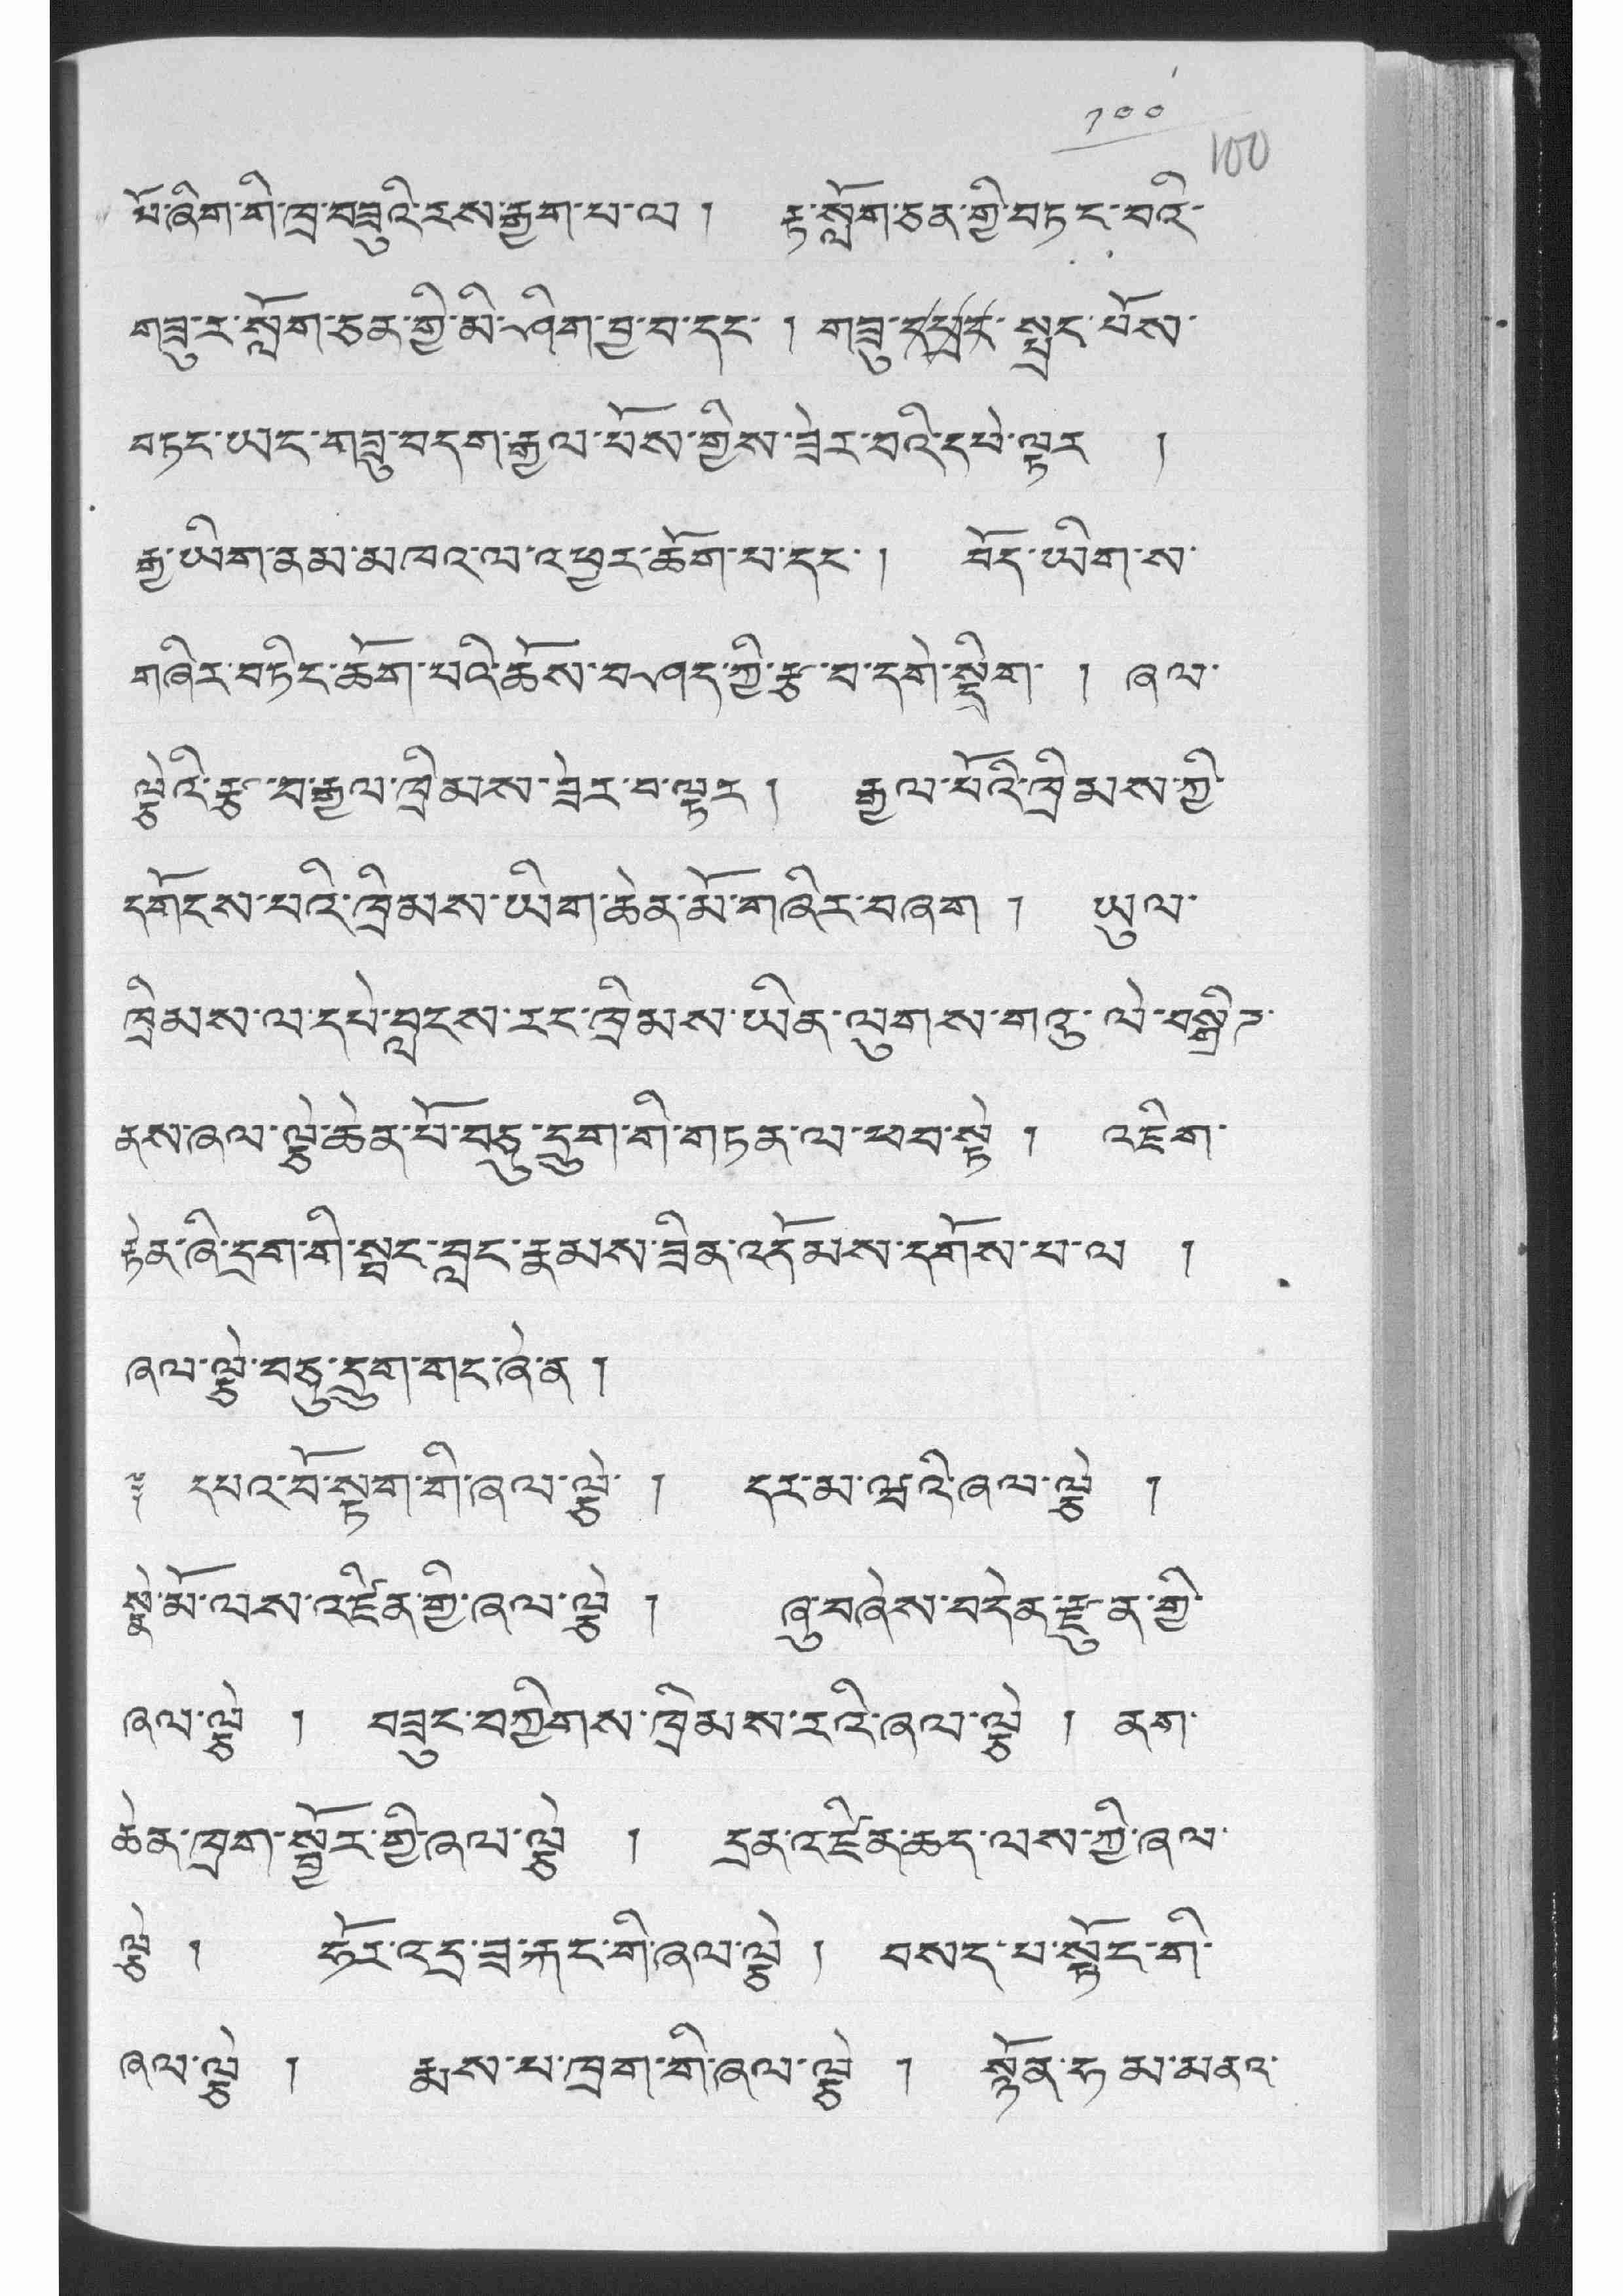 ༡༠༠
100
པོ་ཞིག་གི་ཁྲ་བཟུའི་རས་རྒྱག་པ་ལ། རྟ་སློག་ཅན་གྱི་བཏང་བའི་
གཟུ་ར་སློག་ཅན་གྱི་མི་ཤིག་བྱ་བ་དང་། གཟུ་ སྤྲང་པོས་
བཏང་ཡང་གཟུ་བདག་རྒྱལ་པོས་གྱིས་ཟེར་བའི་དཔེ་ལྟར །
རྒྱ་ཡིག་ནམ་མཁའ་ལ་འཕྱར་ཆོག་པ་དང་། བོད་ཡིག་ས་
གཞིར་བཏིང་ཆོག་པའི་ཆོས་བཤད་ཀྱི་རྩ་བ་དགེ་སྡིག །ཞལ་
ལྕེའི་རྩ་བ་རྒྱལ་ཁྲིམས་ཟེར་བ་ལྟར། རྒྱལ་པོའི་ཁྲིམས་ཀྱི་
དགོངས་པའི་ཁྲིམས་ཡིག་ཆེན་མོ་གཞིར་བཞག། ཡུལ་
ཁྲིམས་ལ་དཔེ་བླངས་རང་ཁྲིམས་ཡིན་ལུགས་གཏུ་ལེ་བསྒྲིཊ་
ནས་ཞལ་ལྕེ་ཆེན་པོ་བཅུ་དྲུག་གི་གཏན་ལ་ཕབ་སྟེ། འཇིག་
རྟེན་ཞི་དྲག་གི་སྤང་བླང་རྣམས་ཟིན་འདོམས་དགོས་པ་ལ །
ཞལ་ལྕེ་བཅུ་དྲུག་གང་ཞེ་ན།
༈ དཔའ་བོ་སྟག་གི་ཞལ་ལྕེ །དར་མ་ཝའི་ཞལ་ལྕེ །
སྣེ་མོ་ལས་འཛིན་གྱི་ཞལ་ལྕེ། ཞུ་བཞེས་བདེན་རྫུན་གྱི་
ཞལ་ལྕེ། བཟུང་བཀྱིགས་ཁྲིམས་རའི་ཞལ་ལྕེ། ནག་
ཆེན་ཁྲག་སྦྱོར་གྱི་ཞལ་ལྕེ། དྲན་འཛིན་ཆད་ལས་ཀྱི་ཞལ་
ལྕེ། ཧོར་འདྲ་ཟ་རྐང་གི་ཞལ་ལྕེ། བསད་པ་སྟོང་གི་
ཞལ་ལྕེ། རྨས་པ་ཁྲག་གི་ཞལ་ལྕེ། སྙོན་ཧམ་མནའ་